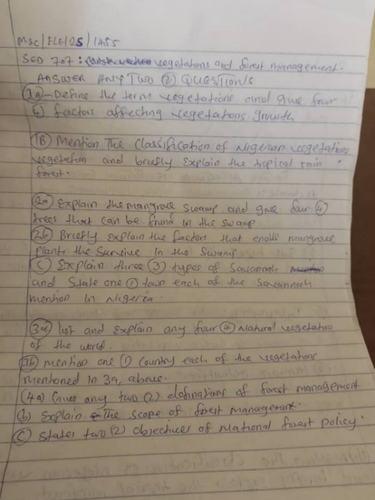 MSC/ELE/05/1455
SED 707: vegetations and forest management.
ANSWER ANY TWO (2) QUESTIONS
1a - Define the term vegetations and give four
4) factors affecting vegetations growth
1B) Mention the classification of Nigerian vegetations
vegetation and briefly explain the tropical rain
forest.
2a) Explain the mangrove swamp and give four 4
trees that can be found in the swamp
2b) Briefly explain the factors that enable mangrove
plants the survive in the swamp
C) Explain three (3) types of savannah
and state one (1) town each of the savannah
mention in Nigeria
3a) list and explain any four (4) Natural vegetation
of the world.
3b) mention one (1) country each of the vegetations
mentioned in 3a, above.
4a) Gives any two (2) definitions of forest management
b) Explain the scope of forest management.
C) States two (2) objectives of National forest policy.